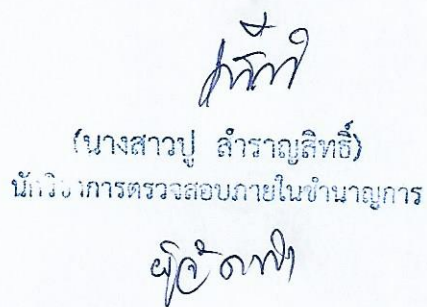 (นางสาวปู สำราญสิทธิ์)
นักวิชาการตรวจสอบภายในชำนาญการ